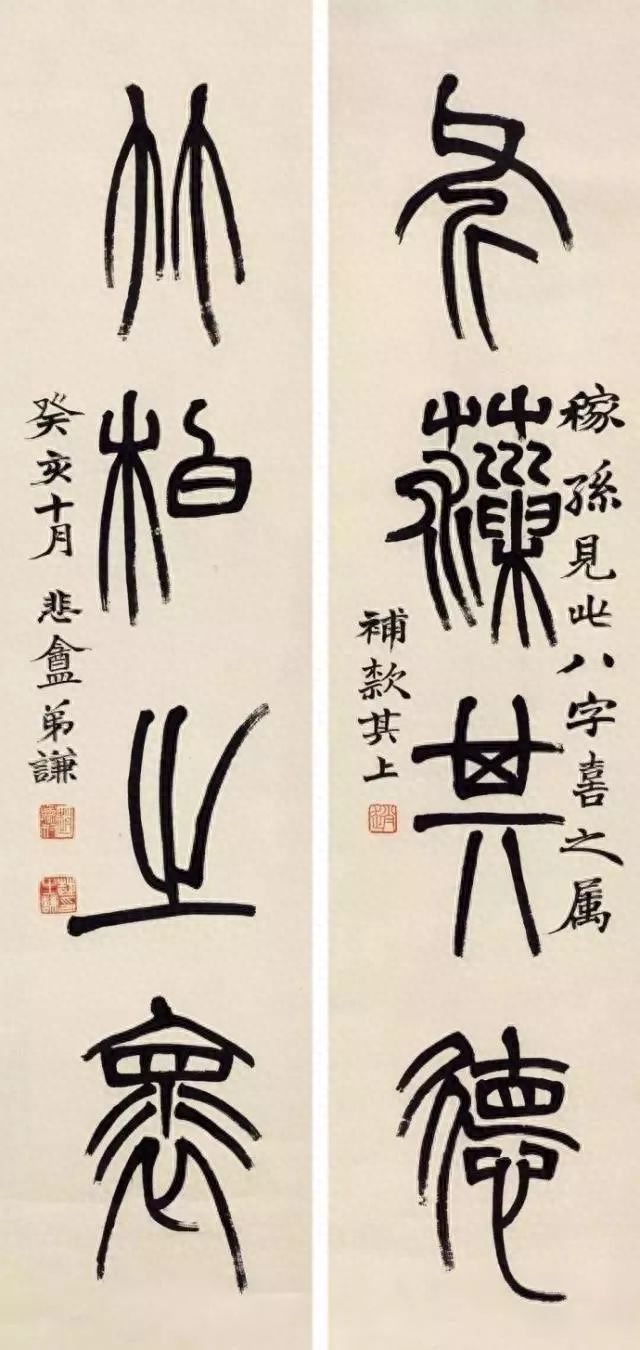 其德
稼孫見此八字喜之属
補欵其上
竹柏之褱
癸亥十月悲盦弟謙